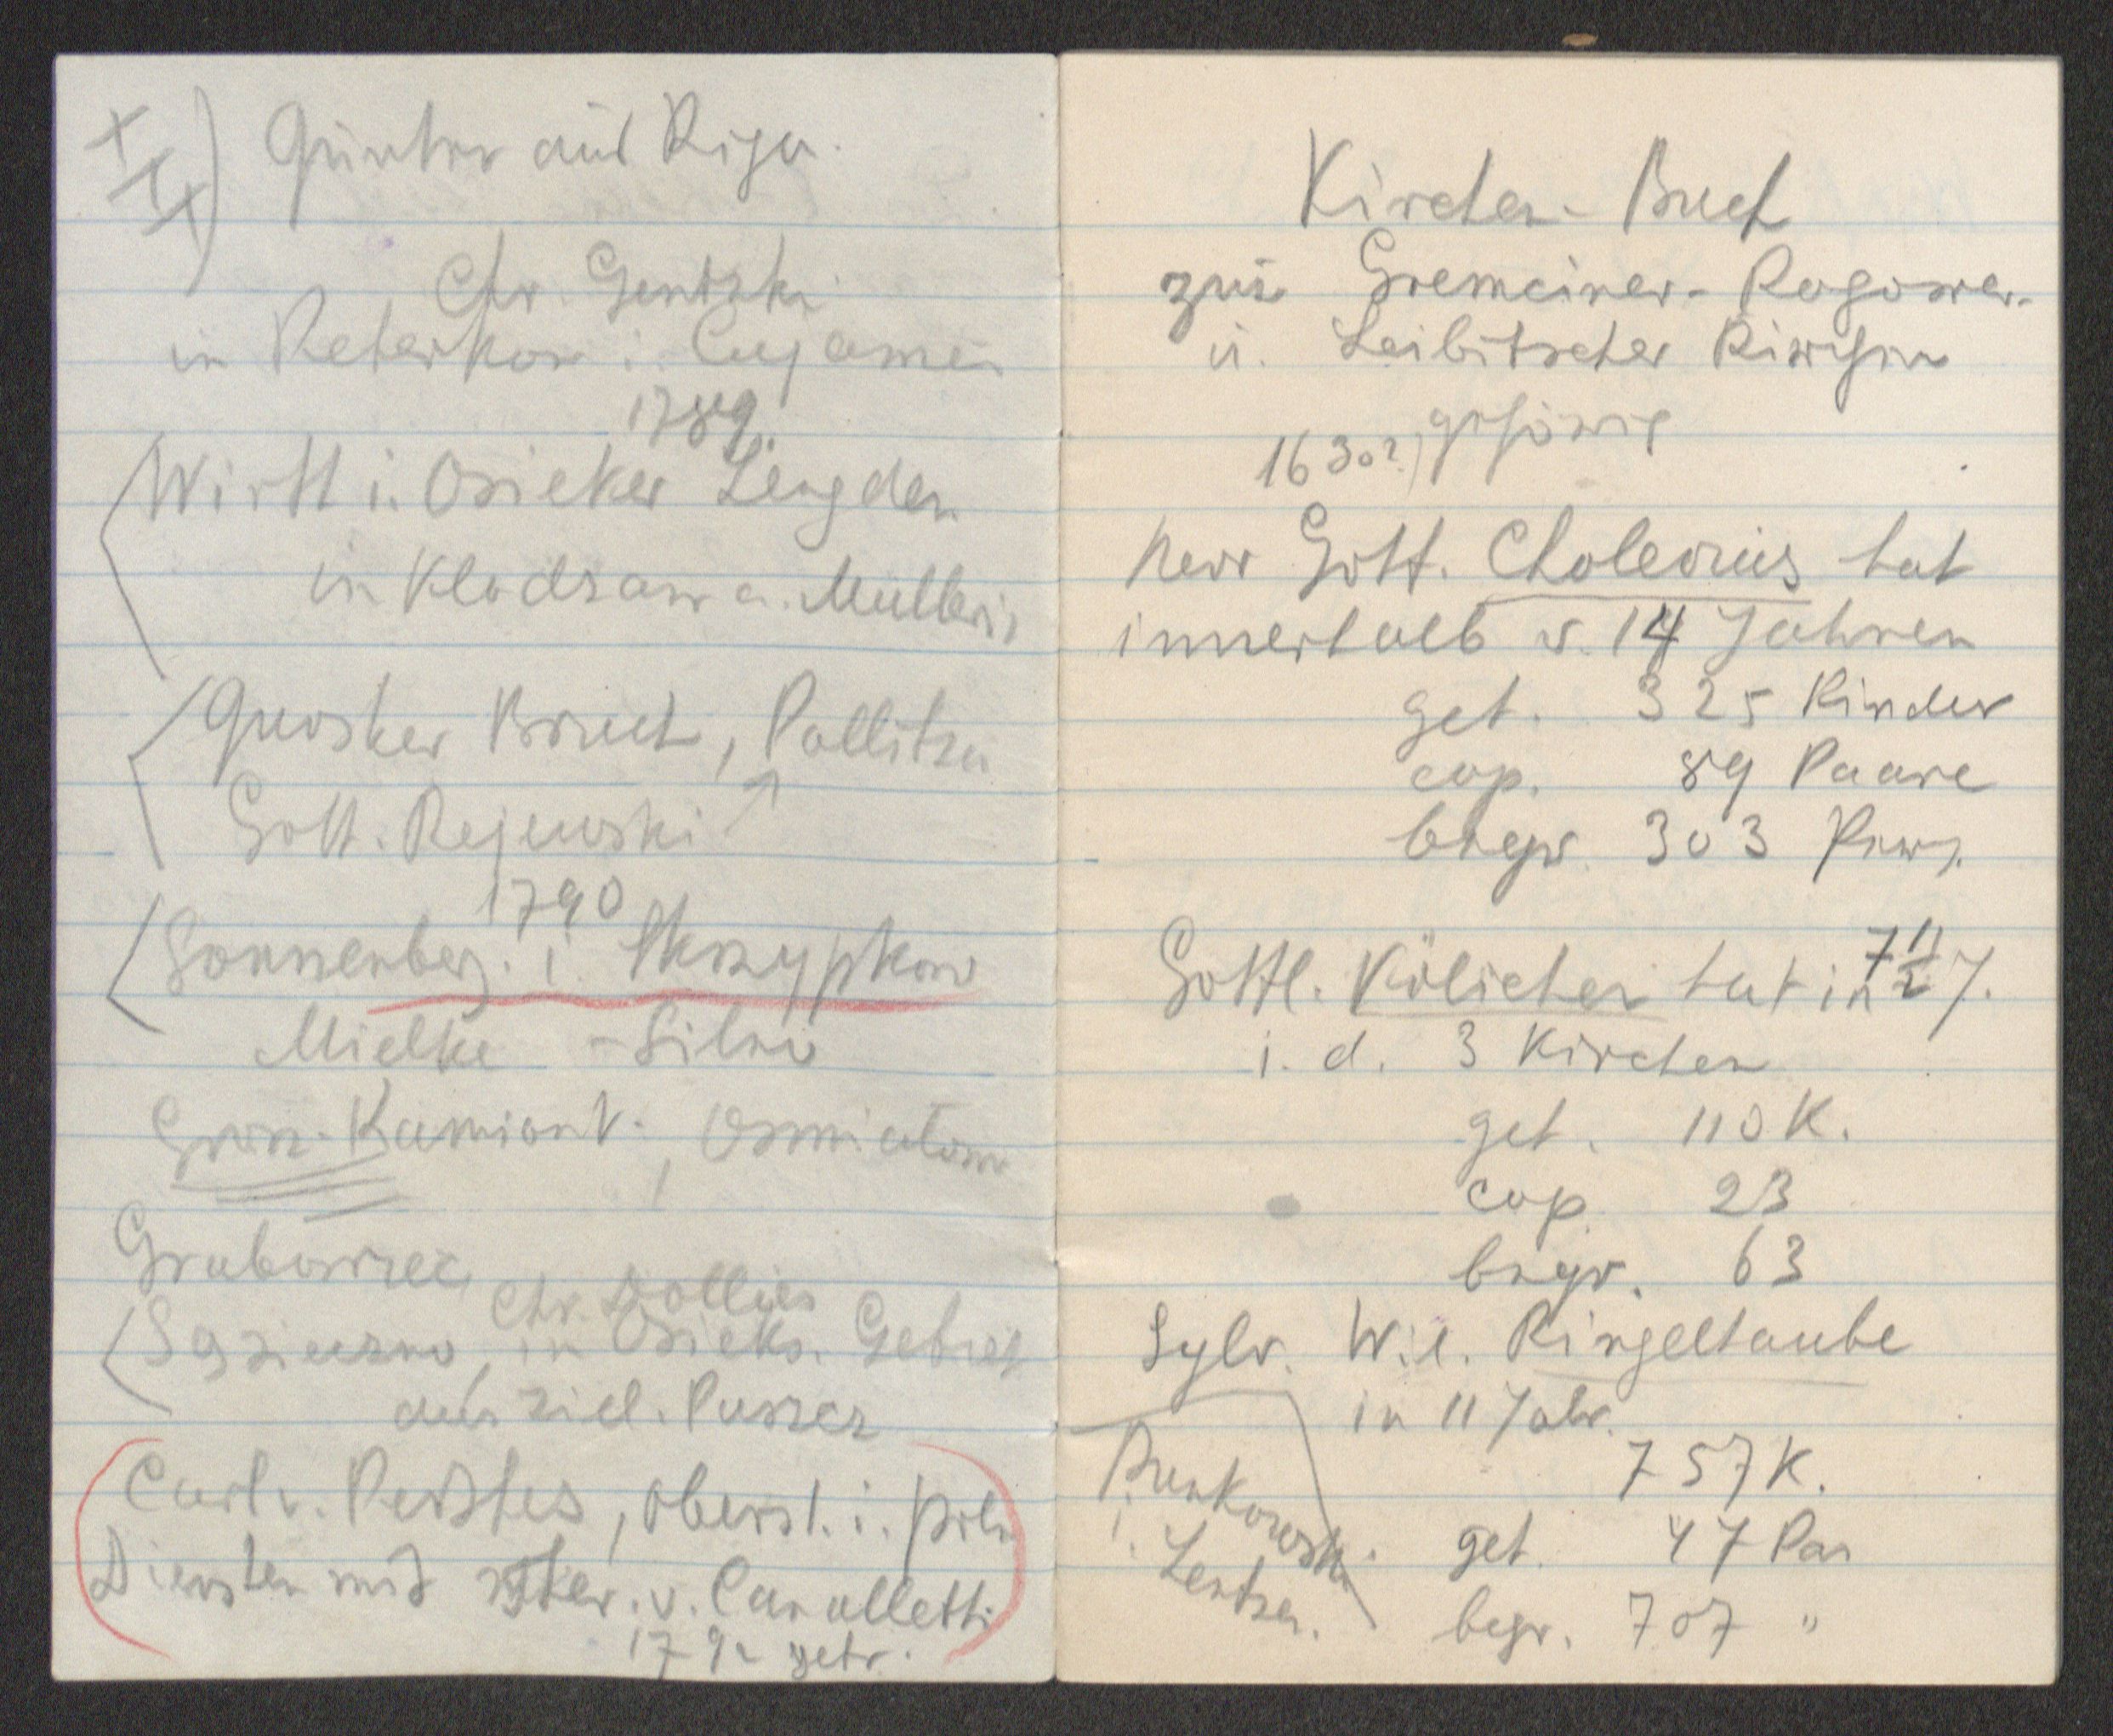 XIX) Günter aus Riga.
Chr. Gentzki
in Peterkow i. Cujawien
1789.
Wirtt i. Osieker Lengden
in Klodzaw a.
Bruch, Pollitzu
Gott. Rejewski ↑
1790
Sonnenberg. i. Skrzypkow
Mielke - Silno
Kamiont. Osmialow
Grabowiec,
Chr. Dollges
in Osieks. Gebiet
aus ziel. Puszcz
Carl v. Perthes, Oberst. i. poln
Diensten mit v. Cavalletti
1792 getr.
Kirchen-Buch
zur Gremeiner- Rogower-
u. Leibitscher Kirchen
1630?) gehörig
Herr Gott. Cholevius hat
innerhalb v. 14 Jahren
get. 325 Kinder
cop. 89 Paare
begr. 303 Pers.
Gottl. Kölichen hat in 7 1/2 J.
i. d. 3 Kirchen
get. 110 K.
cop. 23
begr. 63
Sylv. Wil. Ringeltaube
in 11 Jahr.
757 K.
get. 47 Par
begr. 707 "
i. Lentzen.